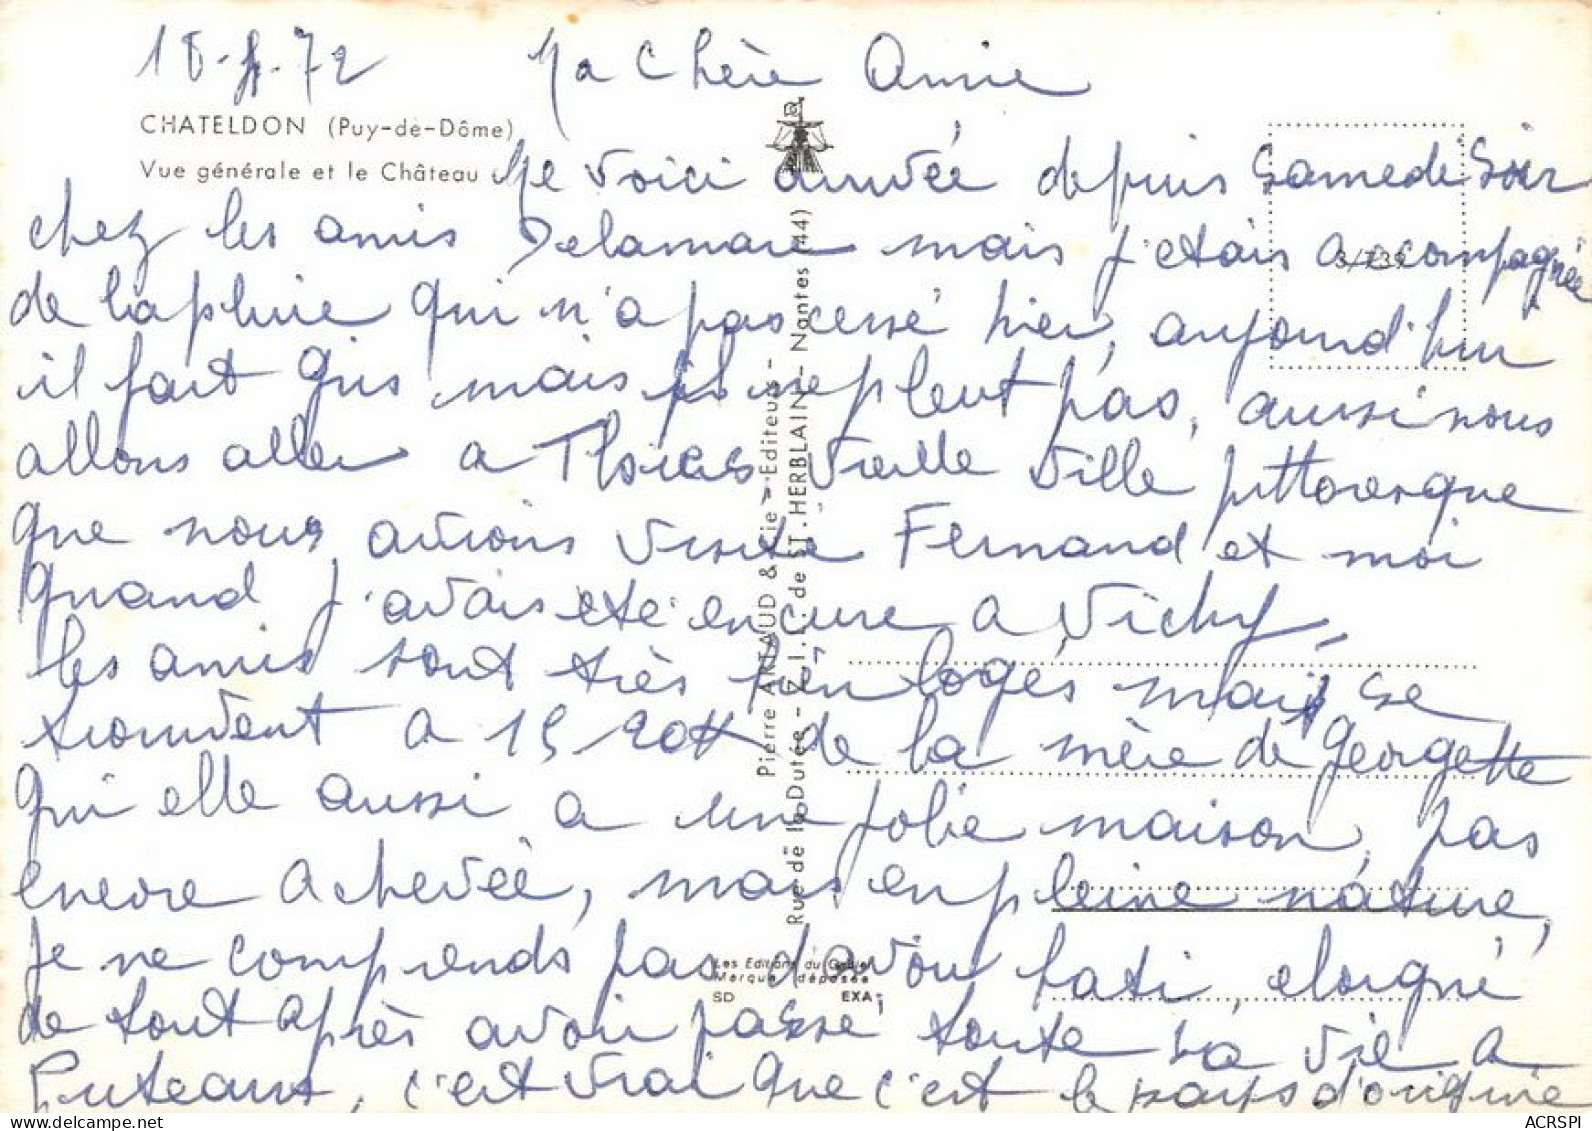 18- -72 Ma Chère Amie
CHATELDON (Puy-de-Dôme)
Vue générale et le Château
Me voici arrivée depuis Samedi Soir
chez les amis Delamare mais j'etais accompagnée
3/739
de la pluie qui n'a pas cessé hier, aujourd'hui
il fait gris mais il ne pleut pas, aussi nous
allons aller a Thiers vieille ville pittoresque
que nous avions visité Fernand et moi
quand j'avais été en cure a Vichy,
les amis sont très bien logés mais se
trouvent a 15 20K de la mère de Georgette
qui elle aussi a une jolie maison, pas
encore achevée, mais en pleine nature,
je ne comprends pas d'avoir bati, eloigné
de tout après avoir passé toute sa vie a
Puteaux, c'est vrai que c'est le pays d'origine
Pierre ARTAUD & Cie - Editeurs -
Rue de la Dutée - Z.I.L. de ST.HERBLAIN - Nantes (44)
Les Editions du Gabier
Marque déposée
SD EXA
ACRSPI